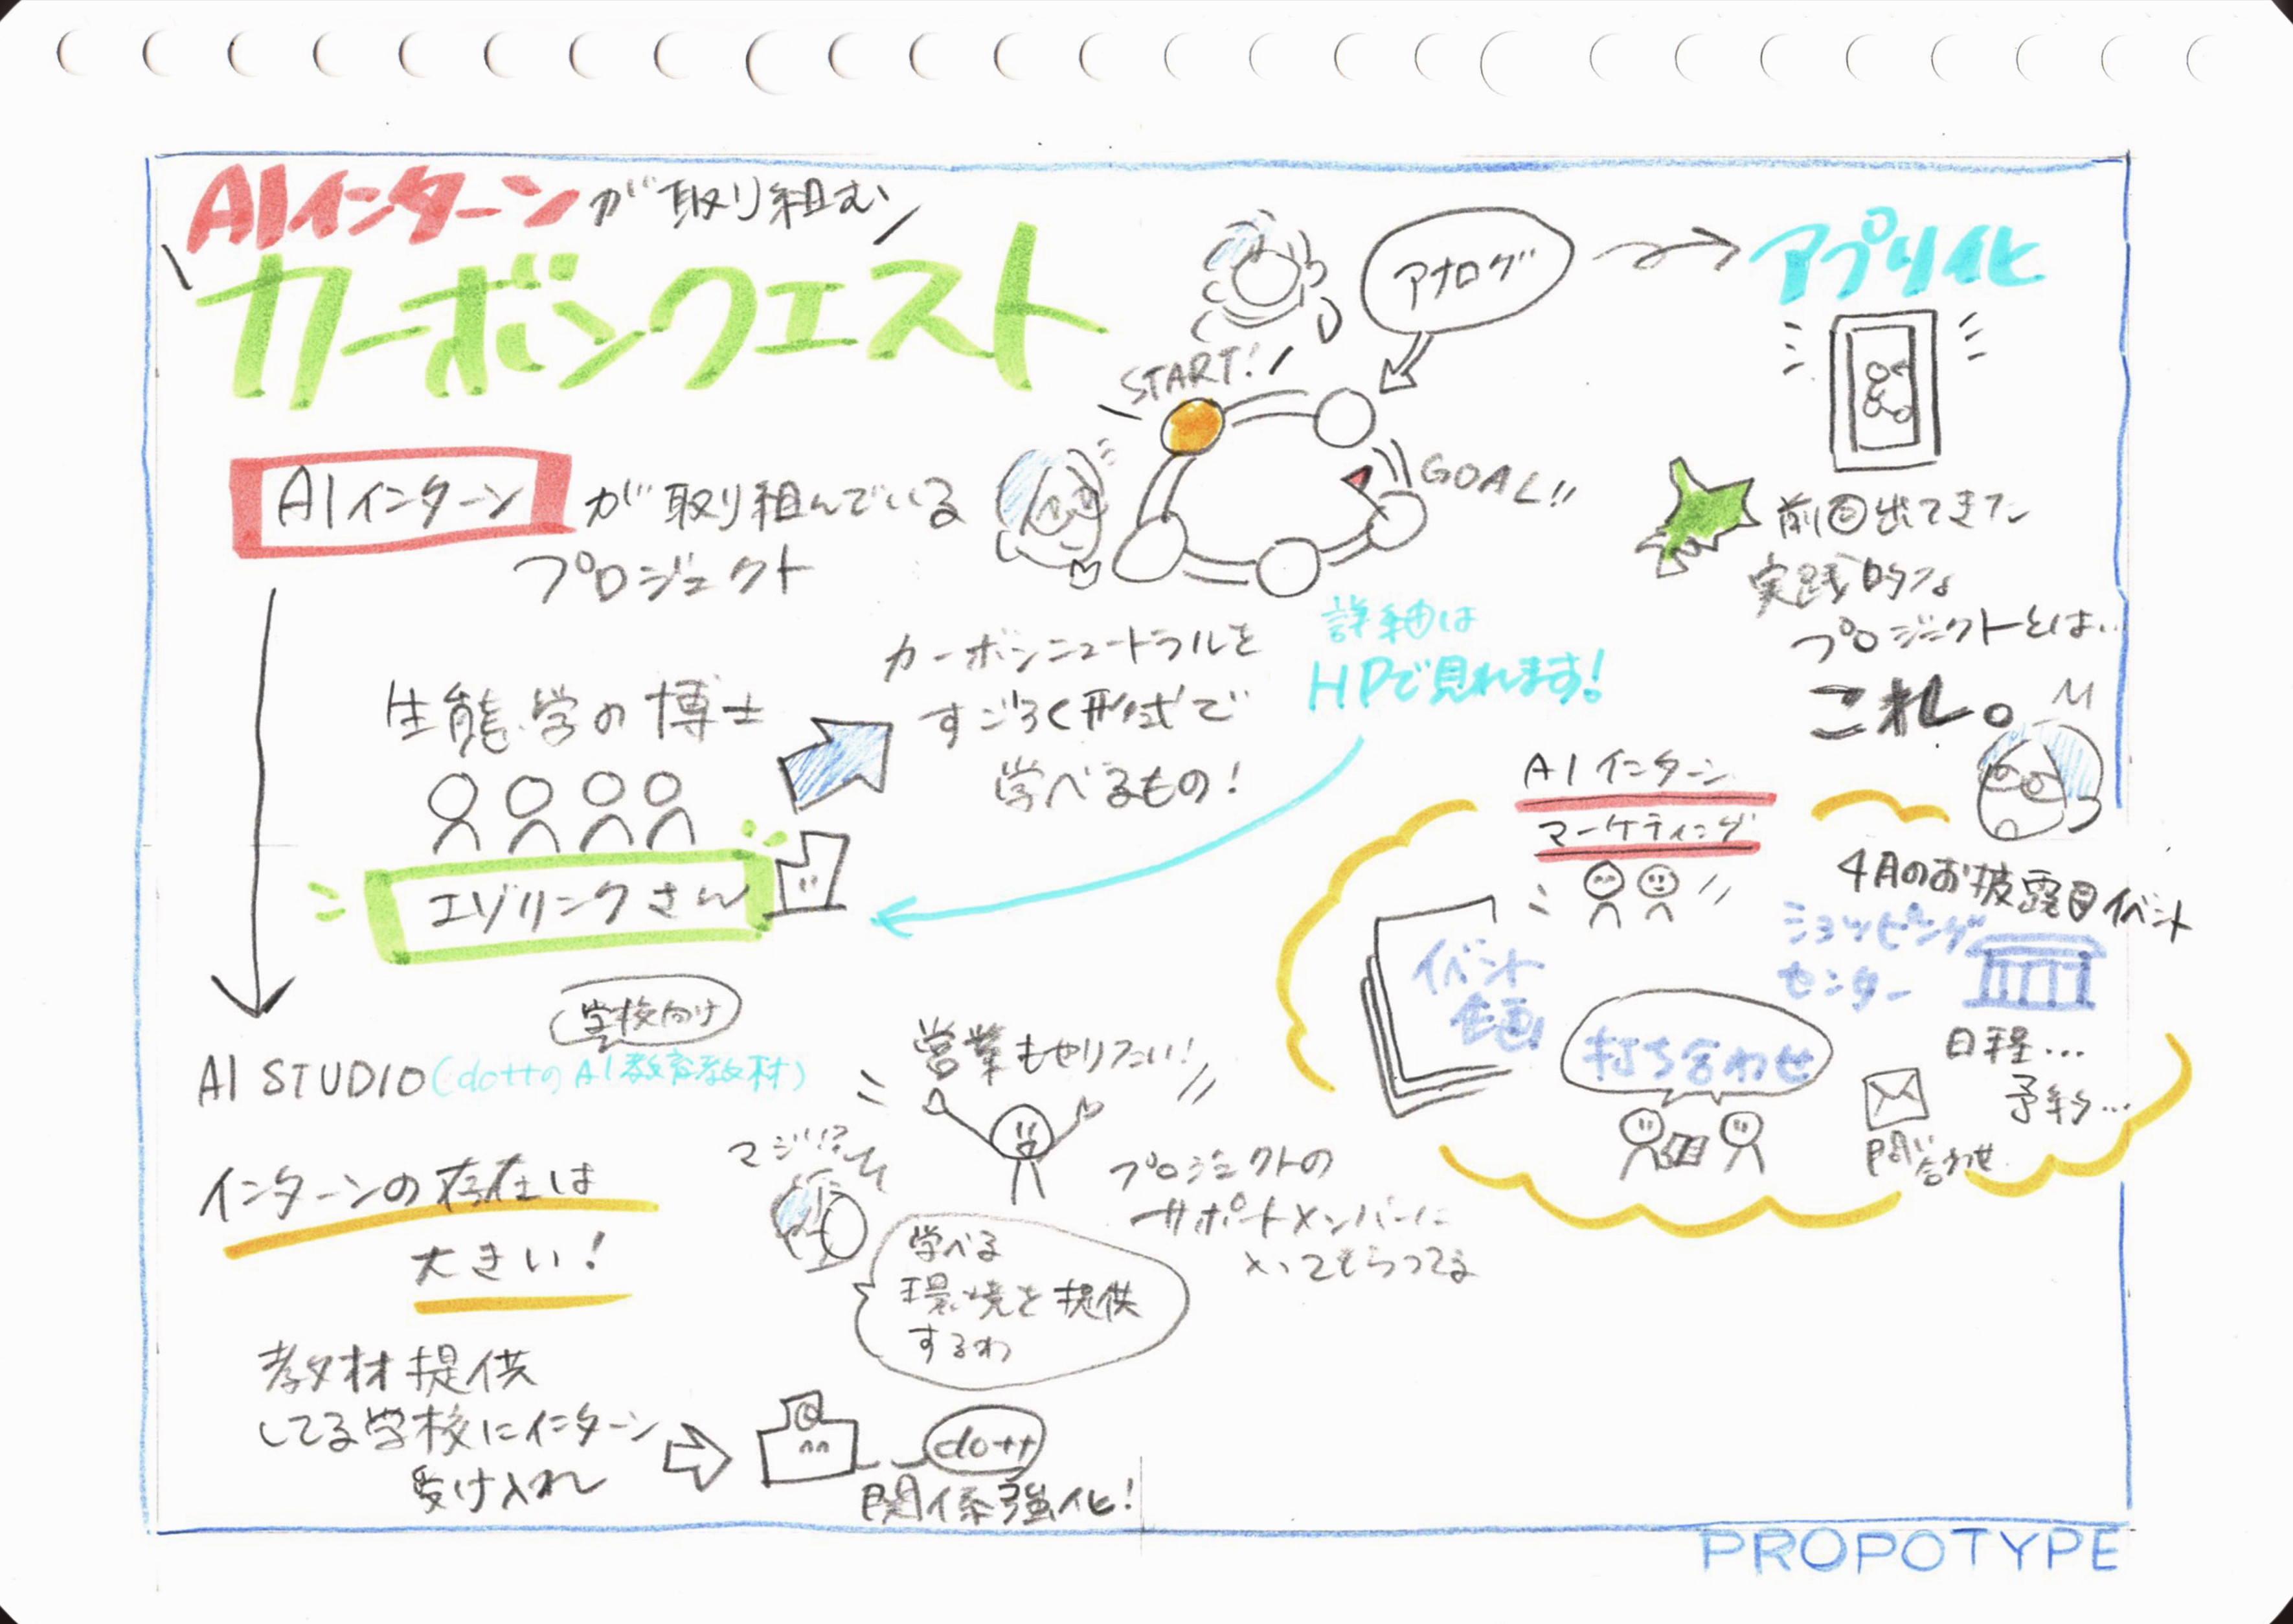 AIインターンが取り組む
カーボンクエスト
アナログ
アプリ化
START!
GOAL!!
AIインターンが取り組んでいる
プロジェクト
前回出てきた
実践的な
プロジェクトとは..
これ。
生態学の博士
エゾリンクさん
カーボンニュートラルを
すごろく形式で
学べるもの!
詳細は
HPで見れます!
AIインターン
マーケティング
4月のお披露目イベント
ショッピング
センター
イベント
企画!
打ち合わせ
日程...
予約...
問い合わせ
学校向け
AI STUDIO(dottのAI教育教材)
インターンの存在は
大きい!
営業もやりたい!
マジ!?
プロジェクトの
サポートメンバーに
入ってもらってる
学べる
環境を提供
するわ
教材提供
してる学校にインターン
受け入れ
dott
関係強化!
PROPOTYPE